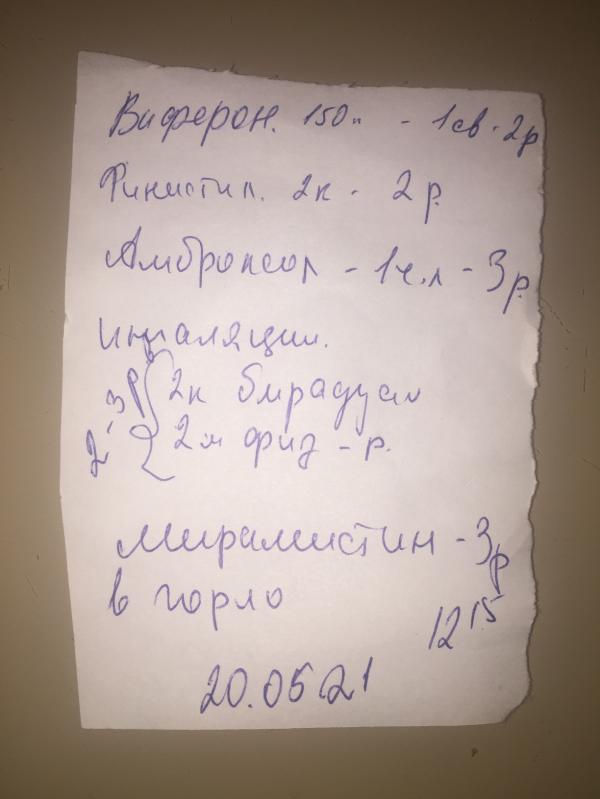 Виферон. 150 - 1св. 2р
Финистил. 2к - 2р.
Амброксол - 1ч.л - 3р.
Ингаляции.
3р 2к бирадуал
2' 2м физ - р.
Мирамистин - 3р
в горло
12 15
20.05 21